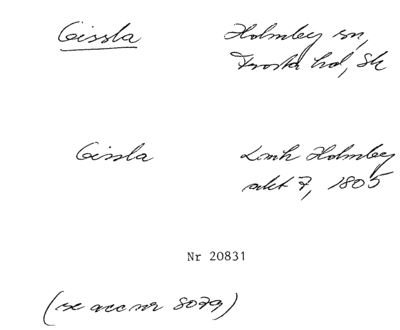 Gissla Holmby sn,
Frosta hd, Sk
Gissla Lmh Holmby
akt 7, 1805
Nr 20831
(se acc nr 8079)